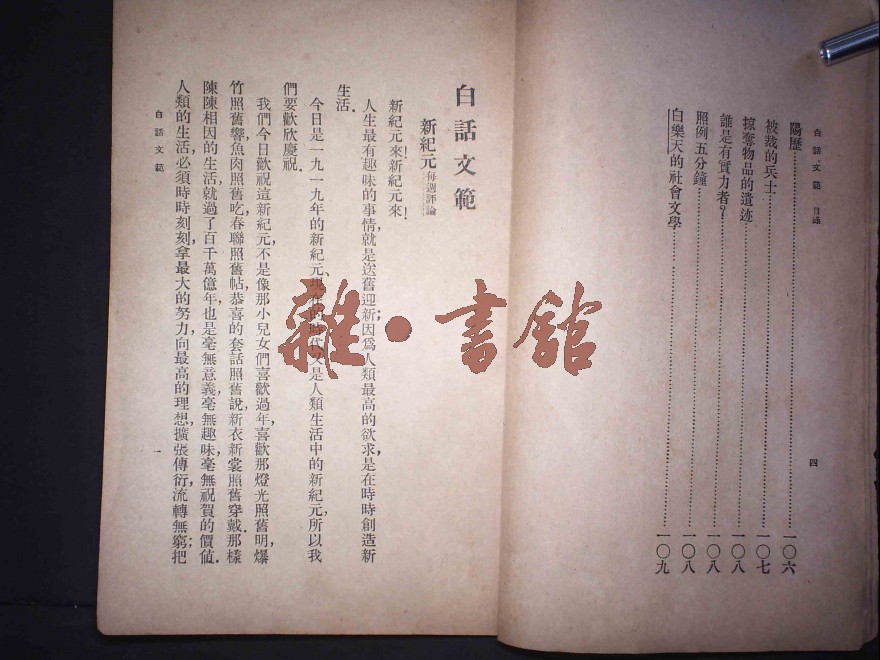 白話文範　目錄
陽歷……………一〇六
被裁的兵士……………一〇七
掠奪物品的遺迹……………一〇八
誰是有實力者？……………一〇八
照例五分鐘……………一〇八
白樂天的社會文學……………一〇九
四
白話文範
新紀元 每週評論
新紀元來！新紀元來！
人生最有趣味的事情，就是送舊迎新；因爲人類最高的欲求，是在時時創造新
生活．
今日是一九一九年的新紀元、現在的時代又是人類生活中的新紀元，所以我
們要歡欣慶祝．
我們今日歡祝這新紀元，不是像那小兒女們喜歡過年，喜歡那燈光照舊明，爆
竹照舊響，魚肉照舊吃，春聯照舊帖，恭喜的套話照舊說，新衣新裳照舊穿戴．那樣
陳陳相因的生活，就過了百千萬億年，也是毫無意義，毫無趣味，毫無祝賀的價值．
人類的生活，必須時時刻刻，拿最大的努力，向最高的理想，擴張傳衍，流轉無窮；把
白話文範
一
雜·書館